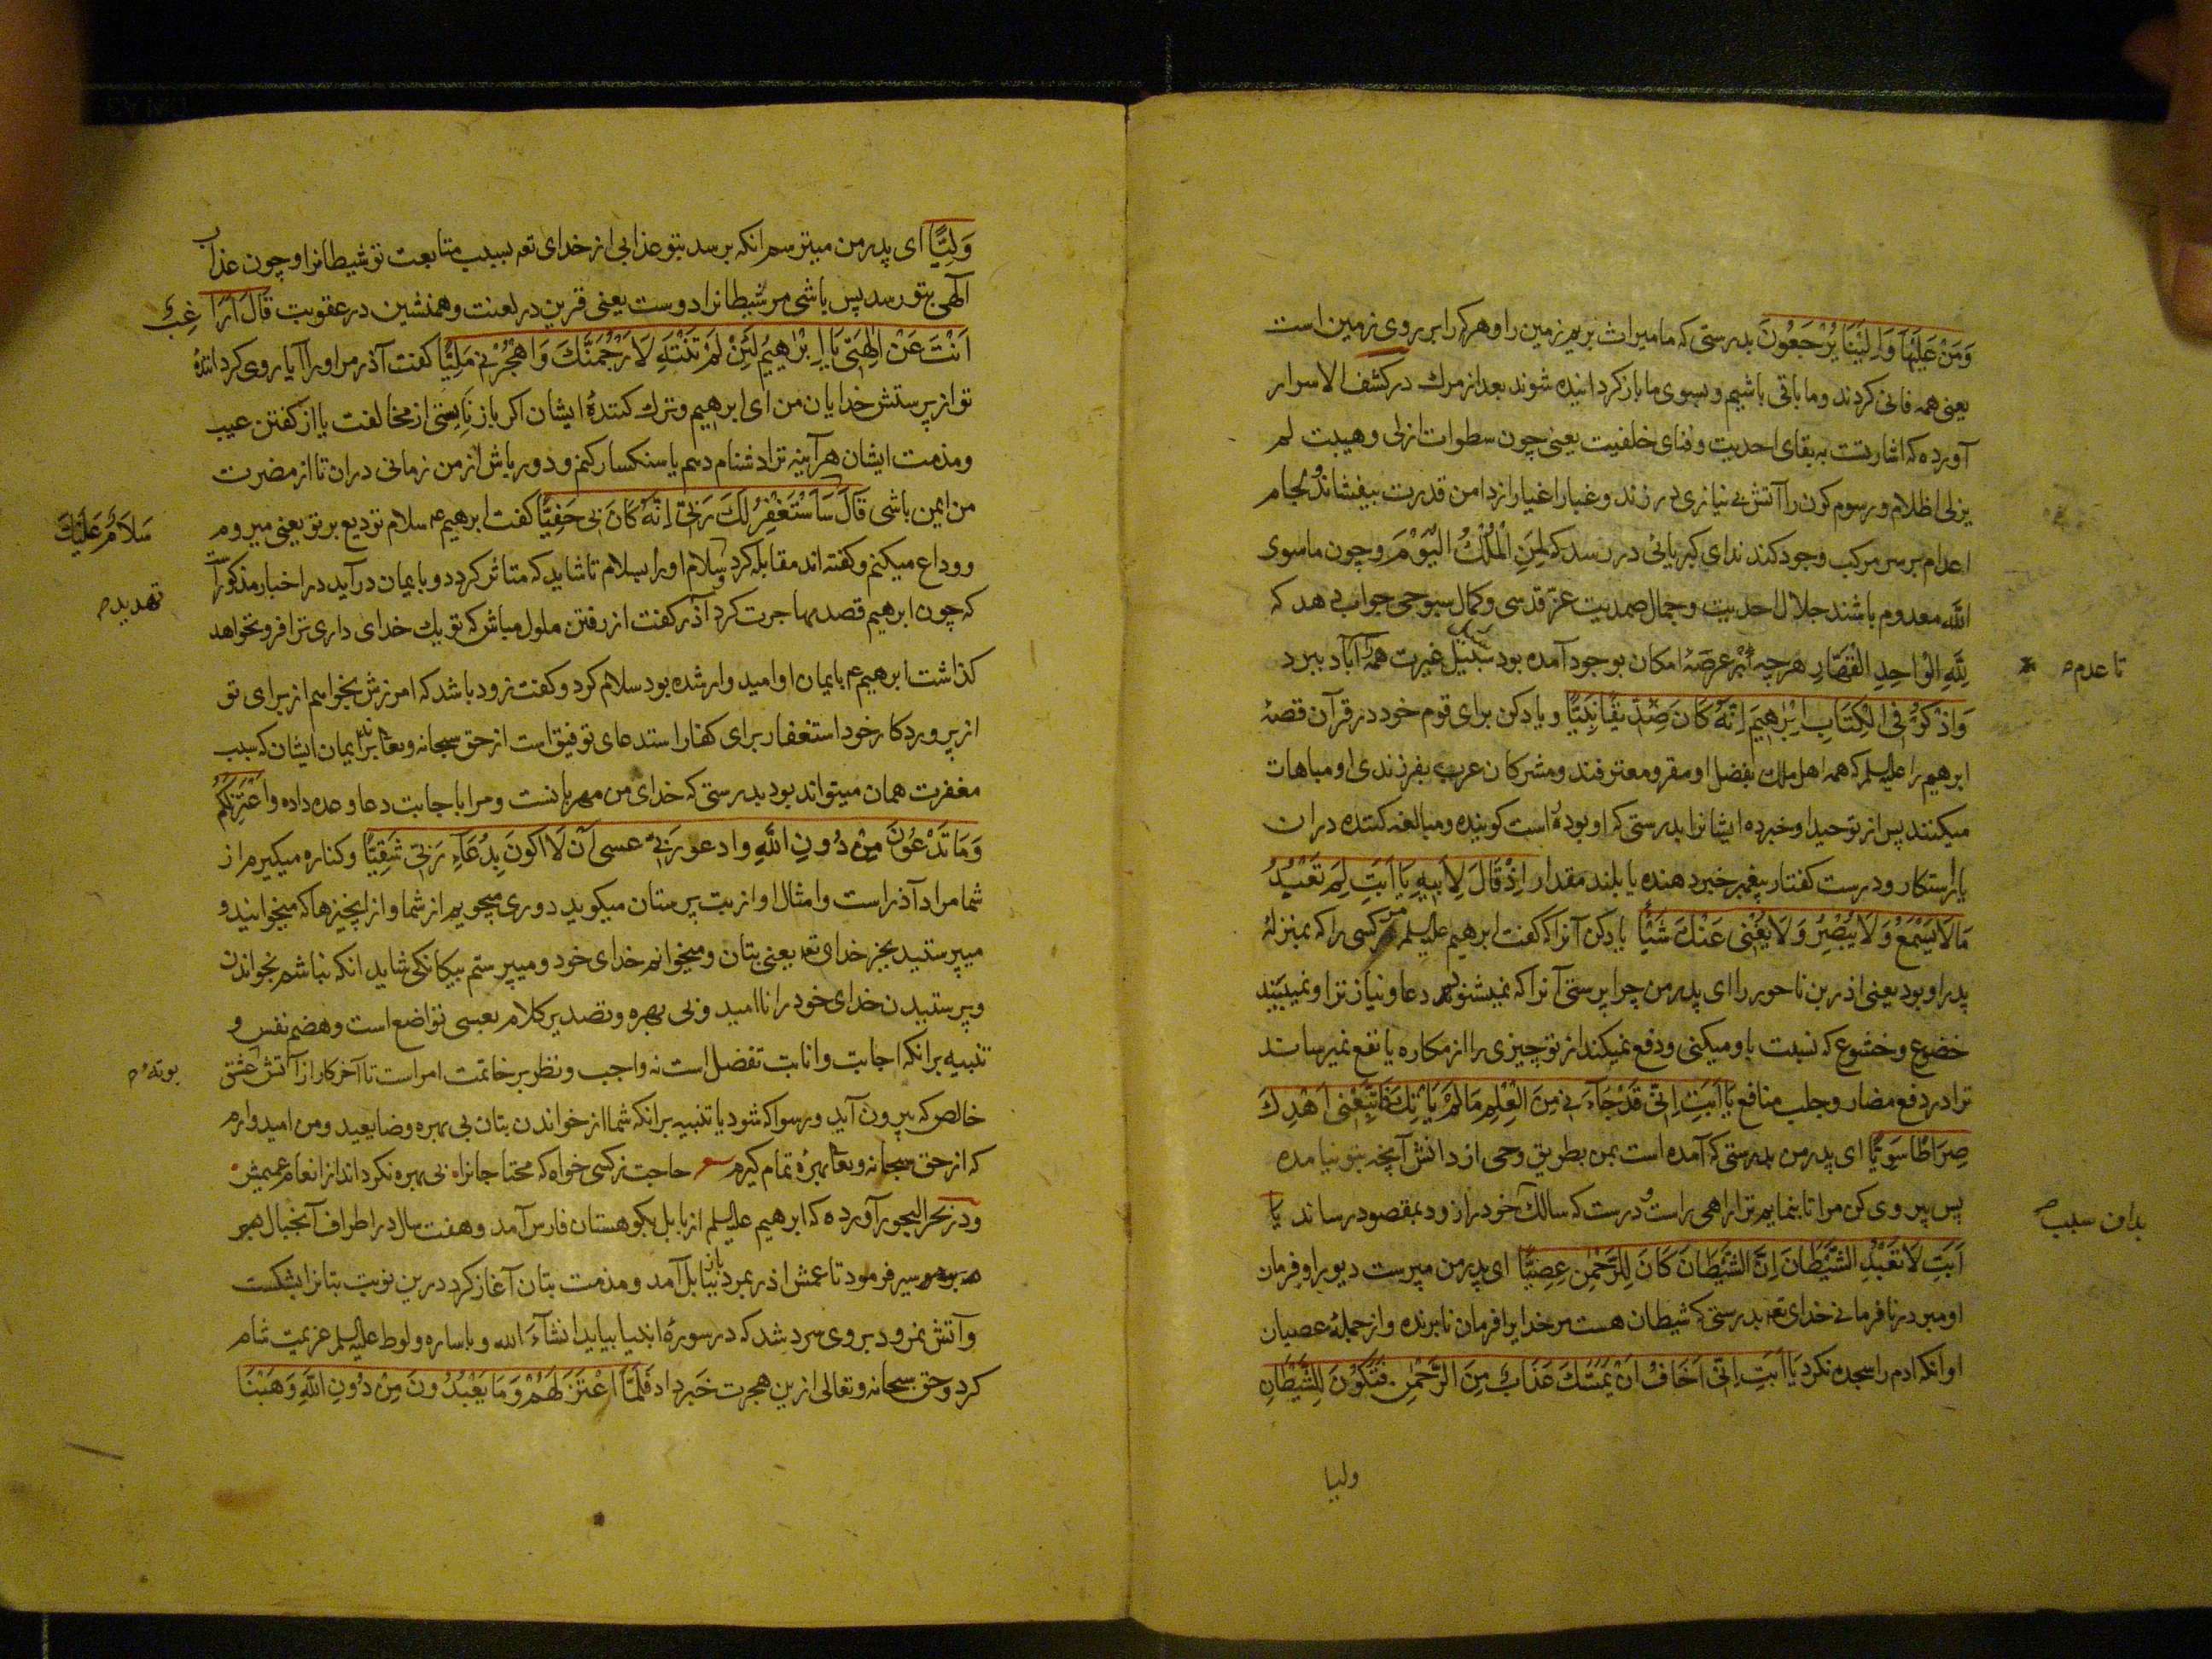 وَمَنْ عَلَيْهَا وَاِلَيْنَا يُرْجَعُونَ بدرستی که ما میراث بریم زمین را و هرکه را بر روی زمین است
یعنی همه فانی کردند و ما باقی باشیم و بسوی ما باز کردانیده شوند بعد از مرك در کشف الاسرار
آورده که اشارتست به بقای احدیت و فنای خلقیت یعنی چون سطوات ازلی و هیبت لم
یزلی اظلام و رسوم کون را آتش بی نیازی در زند و غبار اغیار از دامن قدرت بیفشاند و لجام
اعدام بر سر مرکب وجود کند ندای کبریائی در رسد که لِمَنِ الْمُلْكُ الْيَوْمَ و چون ماسوی
الله معدوم باشند جلال احدیت و جمال صمدیت عز قدسی و کمال سبوحی جواب دهد که
لِلّٰهِ الْوَاحِدِ الْقَهَّارِ هرچه در عرصهٔ امکان بوجود آمده بود سیل غیرت همه را آباد ببرد
تا عدم
وَاذْكُرْ فِى الْكِتَابِ اِبْرٰهِيمَ اِنَّهُ كَانَ صِدِّيقًا نَبِيًّا و یاد کن برای قوم خود در قرآن قصهٔ
ابرهیم را علیه‌السلم که همه اهل ملك بفضل او مقر و معترفند و مشرکان عرب بفرزندی او مباهات
میکنند پس از توحید او خبر ده ایشانرا بدرستی که او بوده است کوینده و مبالغه کننده دران
یا راستکار و درست کفتار پیغمبر خبر دهنده یا بلند مقدار اِذْ قَالَ لِاَبِيهِ يَا اَبَتِ لِمَ تَعْبُدُ
مَا لَا يَسْمَعُ وَلَا يُبْصِرُ وَلَا يُغْنِى عَنْكَ شَيْأً یاد کن آنرا که کفت ابرهیم علیه‌السلم مر کسی را که بمنزلهٔ
پدر او بود یعنی اذر بن ناحور را ای پدر من چرا پرستی آنرا که نمیشنود دعا و نیاز ترا و نمیبیند
خضوع و خشوع که نسبت باو میکنی و دفع نمیکند از تو چیزی را از مکاره یا نفع نمیرساند
ترا در دفع مضار و جلب منافع يَا اَبَتِ اِنِّى قَدْ جَآءَ نِى مِنَ الْعِلْمِ مَا لَمْ يَاْتِكَ فَاتَّبِعْنِى اَهْدِكَ
صِرَاطًا سَوِيًّا ای پدر من بدرستی که آمده است بمن بطریق وحی از دانش آنچه بتو نیامده
پس پیروی کن مرا تا بنمایم ترا راهی راست و درست که سالك خود را زود بمقصود رساند يَا
بدان سبب
اَبَتِ لَا تَعْبُدِ الشَّيْطَانَ اِنَّ الشَّيْطَانَ كَانَ لِلرَّحْمٰنِ عِصِيًّا ای پدر من مپرست دیو را و فرمان
او مبر در نافرمانی خدای تعه بدرستی که شیطان هست مر خدایرا فرمان نابرنده و از جملهٔ عصیان
او انکه ادم را سجده نکرد يَا اَبَتِ اِنِّى اَخَافُ اَنْ يَمَسَّكَ عَذَابٌ مِنَ الرَّحْمٰنِ فَتَكُونَ لِلشَّيْطَانِ
ولیا
وَلِيًّا ای پدر من میترسم انکه برسد بتو عذابی از خدای تعه بسبب متابعت تو شیطانرا و چون عذاب
الهی بتو رسد پس باشی مر شیطانرا دوست یعنی قرین در لعنت و همنشین در عقوبت قَالَ اَرَاغِبٌ
اَنْتَ عَنْ اٰلِهَتِى يَا اِبْرٰهِيمُ لَئِنْ لَمْ تَنْتَهِ لَاَرْجُمَنَّكَ وَاهْجُرْنِى مَلِيًّا کفت آذر مر او را آیا روی کرداننده
تو از پرستش خدایان من ای ابرهیم و ترك کنندهٔ ایشان اکر باز نایستی از مخالفت یا از کفتن عیب
و مذمت ایشان هرآینه ترا دشنام دهم یا سنکسار کنم و دور باش از من زمانی دران تا از مضرت
من ایمن باشی قَالَ سَاَسْتَغْفِرُ لَكَ رَبِّى اِنَّهُ كَانَ بِى حَفِيًّا کفت ابرهیم عم سلام تودیع بر تو یعنی میروم
سَلَامٌ عَلَيْكَ
و وداع میکنم و کفته اند مقابله کرد سلام او را بسلام تا شاید که متاثر کردد و بایمان درآید در اخبار مذکور است
تهدید
که چون ابرهیم قصد مهاجرت کرد آذر کفت از رفتن ملول مباش که تو یك خدای داری ترا فرو نخواهد
کذاشت ابرهیم عم بایمان او امیدوار شده بود سلام کرد و کفت زود باشد که امرزش بخواهم از برای تو
از پروردکار خود استغفار برای کفار استدعای توفیق است از حق سبحانه و تعا برای ایمان ایشان که سبب
مغفرت همان میتواند بود بدرستی که خدای من مهربانست و مرا باجابت دعا وعده داده وَاَعْتَزِلُكُمْ
وَمَا تَدْعُونَ مِنْ دُونِ اللّٰهِ وَادعو رَبِّى عسى اَنْ لَا اَكُونَ بِدُعَآءِ رَبِّى شَقِيًّا و کناره میکیرم از
شما مراد آذر است و امثال او از بت پرستان میکوید دوری میجویم از شما و از انچیزها که میخوانید و
میپرستید بجز خدای تعه یعنی بتان و میخوانم خدای خود و میپرستم بیکانکی شاید انکه نباشم بخواندن
و پرستیدن خدای خود را نا امید و بی بهره و تصدیر کلام بعسی تواضع است و هضم نفس و
تنبیه برانکه اجابت و انابت تفضل است نه واجب و نظر بر خاتمت امر است تا آخر کار از آتش عشق
بوتهٔ
خالص که بیرون آید و رسوا که شود یا تنبیه برانکه شما از خواندن بتان بی بهره و ضایعید و من امیدوارم
که از حق سبحانه و تعا بهرهٔ تمام کیرم شعر حاجت ز کسی خواه که محتاجانرا بی بهره نکرداند از انعام عمیمش
و در بحر البحور آورده که ابرهیم علیه‌السلم از بابل بکوهستان فارس آمد و هفت سال در اطراف آنجبال
سیر فرمود تا عمش اذر بمرد باز ببابل آمد و مذمت بتان آغاز کرد درین نوبت بتانرا بشکست
و آتش نمرود بروی سرد شد که در سورهٔ انبیا بیاید انشآء الله و با ساره و لوط علیه‌السلم عزیمت شام
کرد و حق سبحانه و تعالی ازین هجرت خبر داد فَلَمَّا اعْتَزَلَهُمْ وَمَا يَعْبُدُونَ مِنْ دُونِ اللّٰهِ وَهَبْنَا